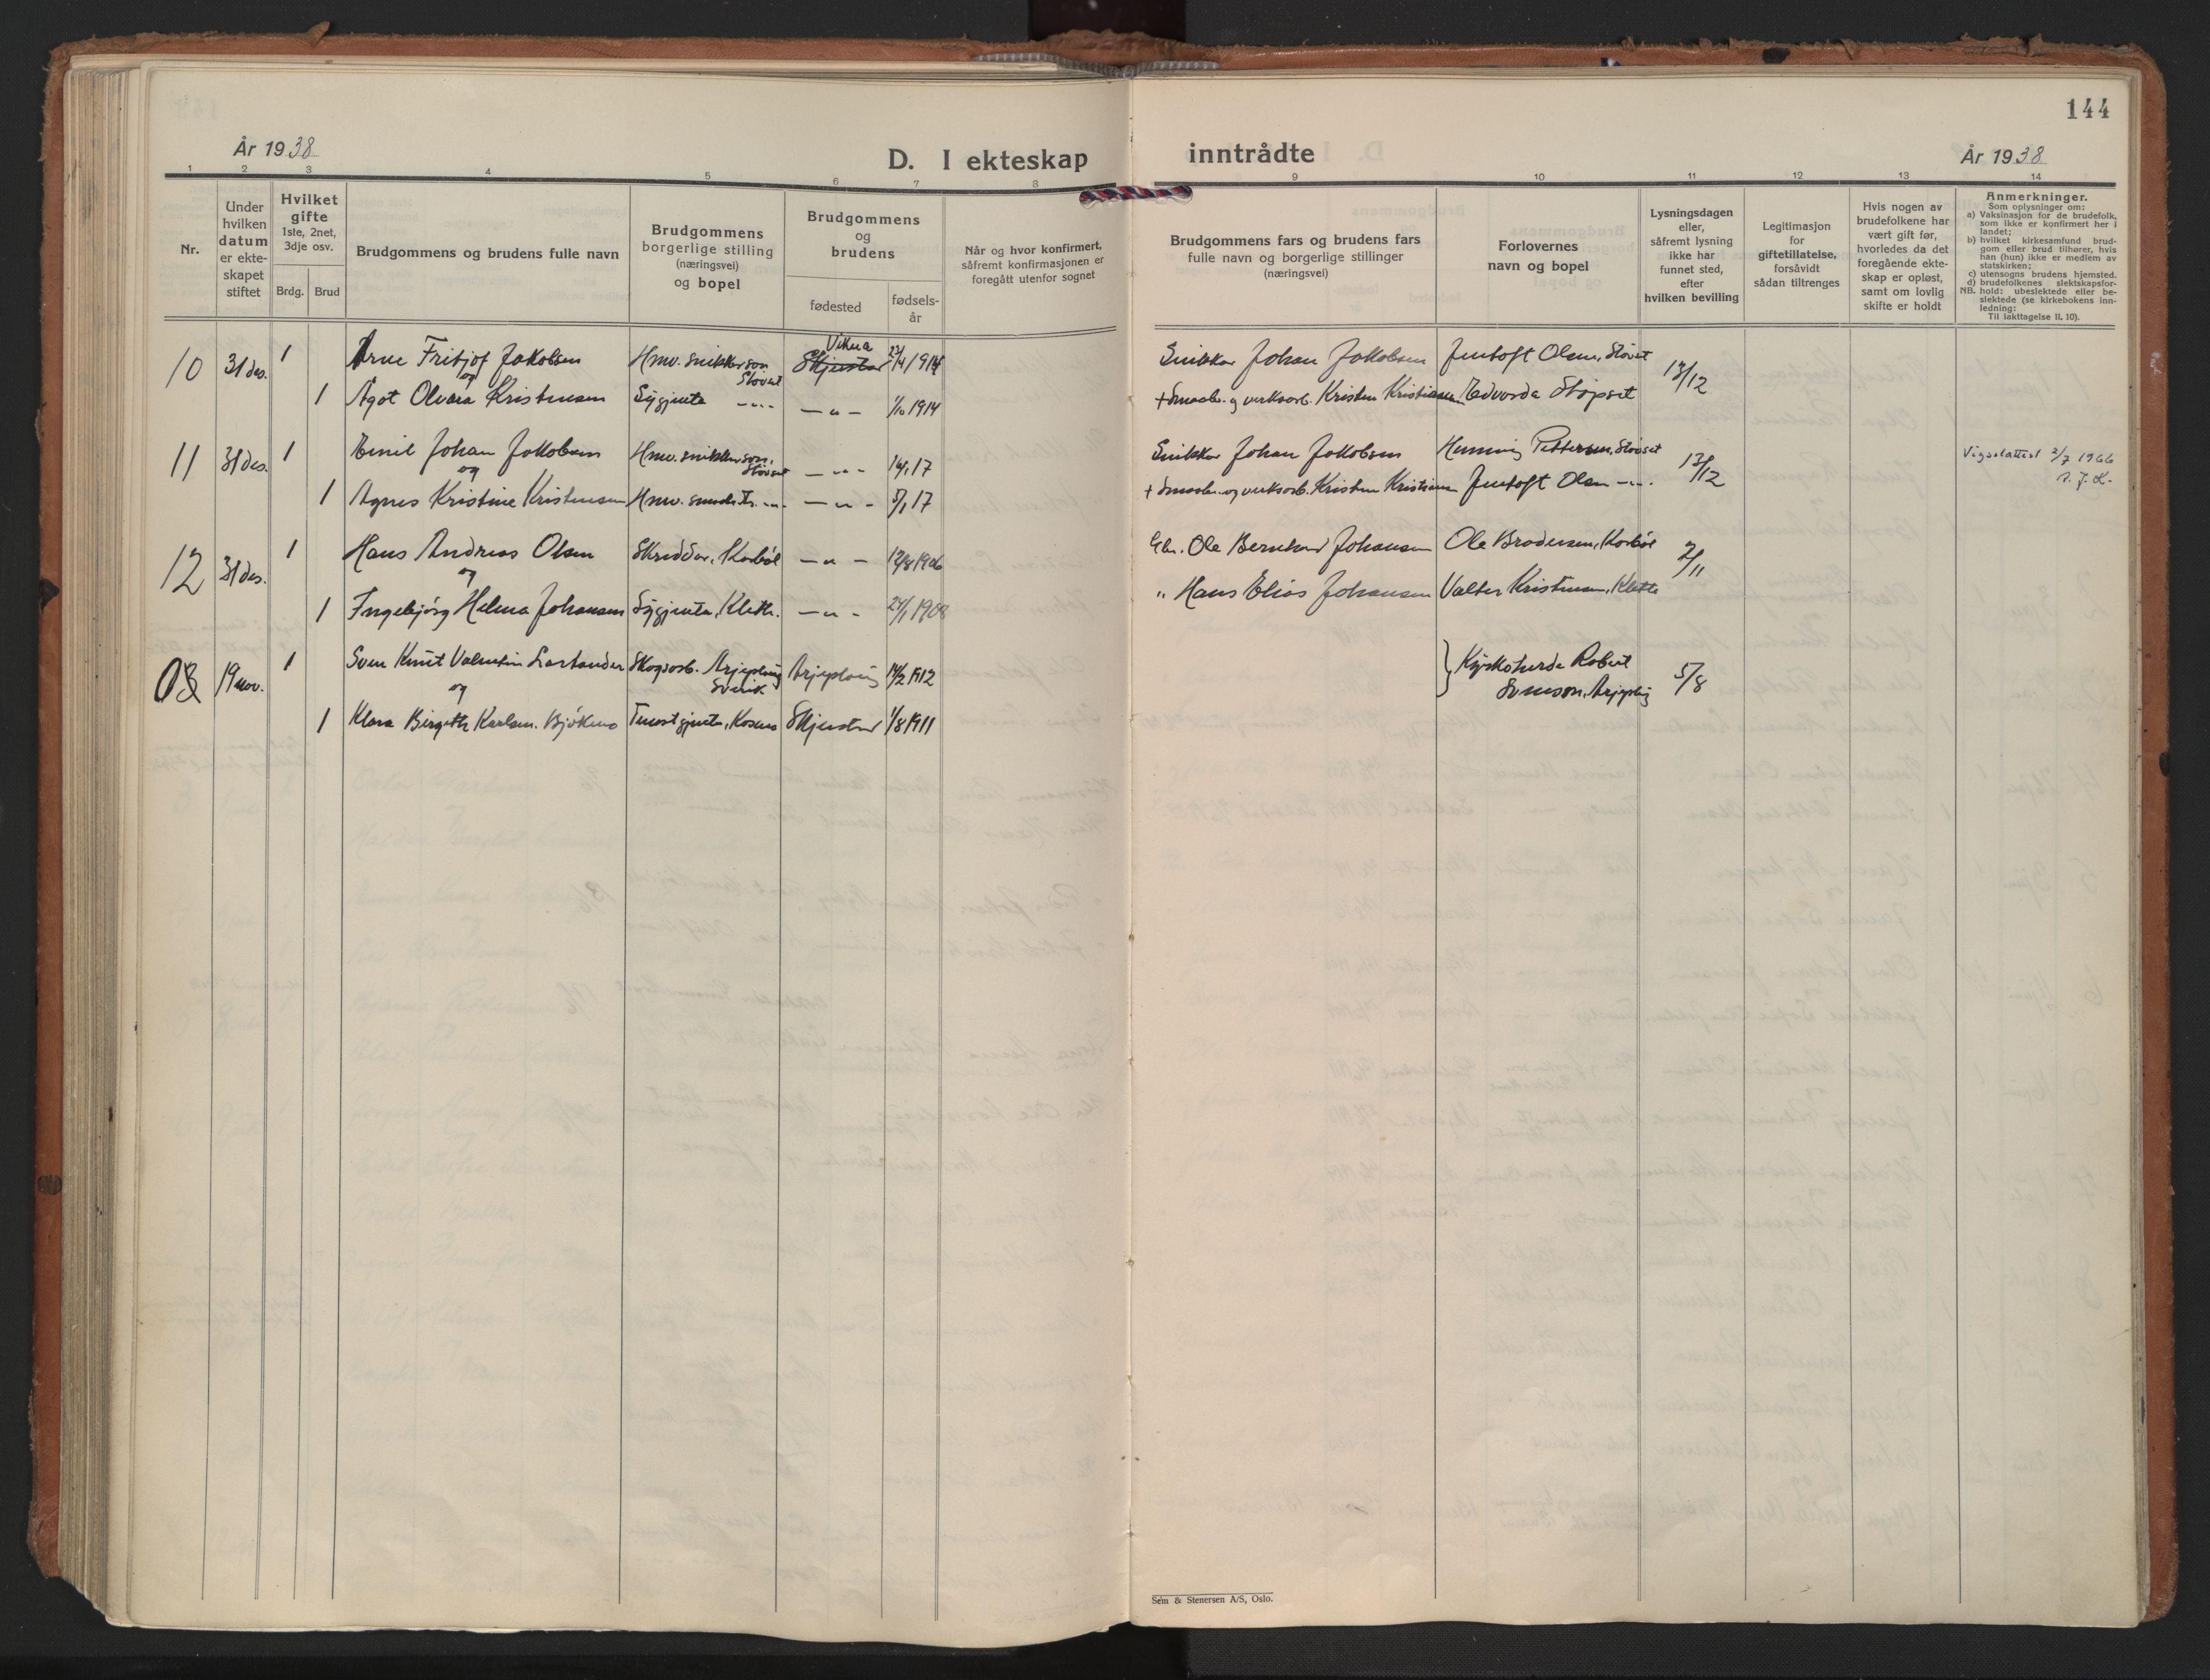 144
År 1938
D. I ekteskap inntrådte
År 1938
1 2 3 4 5 6 7 8 9 10 11 12 13 14
Nr.
Under
hvilken
datum
er ekte-
skapet
stiftet
Hvilket
gifte
1ste, 2net,
3dje osv.
Brdg. Brud
Brudgommens og brudens fulle navn
Brudgommens
borgerlige stilling
(næringsvei)
og bopel
Brudgommens
og
brudens
fødested
fødsels-
år
Når og hvor konfirmert,
såfremt konfirmasjonen er
foregått utenfor sognet
Brudgommens fars og brudens fars
fulle navn og borgerlige stillinger
(næringsvei)
Forlovernes
navn og bopel
Lysningsdagen
eller,
såfremt lysning
ikke har
funnet sted,
efter
hvilken bevilling
Legitimasjon
for
giftetillatelse,
forsåvidt
sådan tiltrenges
Hvis nogen av
brudefolkene har
vært gift før,
hvorledes da det
foregående ekte-
skap er opløst,
samt om lovlig
skifte er holdt
Anmerkninger.
Som oplysninger om:
a) Vaksinasjon for de brudefolk,
som ikke er konfirmert her i
landet;
b) hvilket kirkesamfund brud-
gom eller brud tilhører, hvis
han (hun) ikke er medlem av
statskirken;
c) utensogns brudens hjemsted.
d) brudefolkenes slektskapsfor-
NB. hold: ubeslektede eller be-
slektede (se kirkebokens inn-
ledning:
Til iakttagelse II. 10).
10 31 des. 1 Arne Fritjof Jakobsen Hmv. snikkerson Vikna Skjerstad 23/4 1914 Snikker Johan Jakobsen Jentoft Olsen, Støvset 13/12
og Støvset
1 Ågot Olvara Kristensen Sygjente -"- -"- 1/10 1914 Kristen Kristiansen
11 31 des. 1 Emil Johan Jakobsen Hmv. snikkerson, -"- 17 Snikker Johan Jakobsen Henning Pettersen, Støvset 13/12 Vigselattest 2/7 1966
og Støvset
1 Agnes Kristine Kristensen Hmv. -"- -"- 17 Kristen Kristiansen Jentoft Olsen -"-
12 31 des. 1 Hans Andreas Olsen Skredder, -"- 1906 Gbr. Ole Bernhard Johansen Ole Brodersen, 2/11
og
1 Ingebjørg Helena Johansen Sygjente, Klette. -"- 1908 " Hans Elias Johansen Valter Kristensen, Klette
03 19 nov. 1 Sven Knut Valentin Skogsarb. Arjeplog Arjeplog 14/2 1912 Kyrkoherde Robert 5/8
og Sverik Arjeplog
1 Klara Birgith Karlsen. Tenestgjente, Skjerstad 1/8 1911
Sem & Stenersen A/S, Oslo.